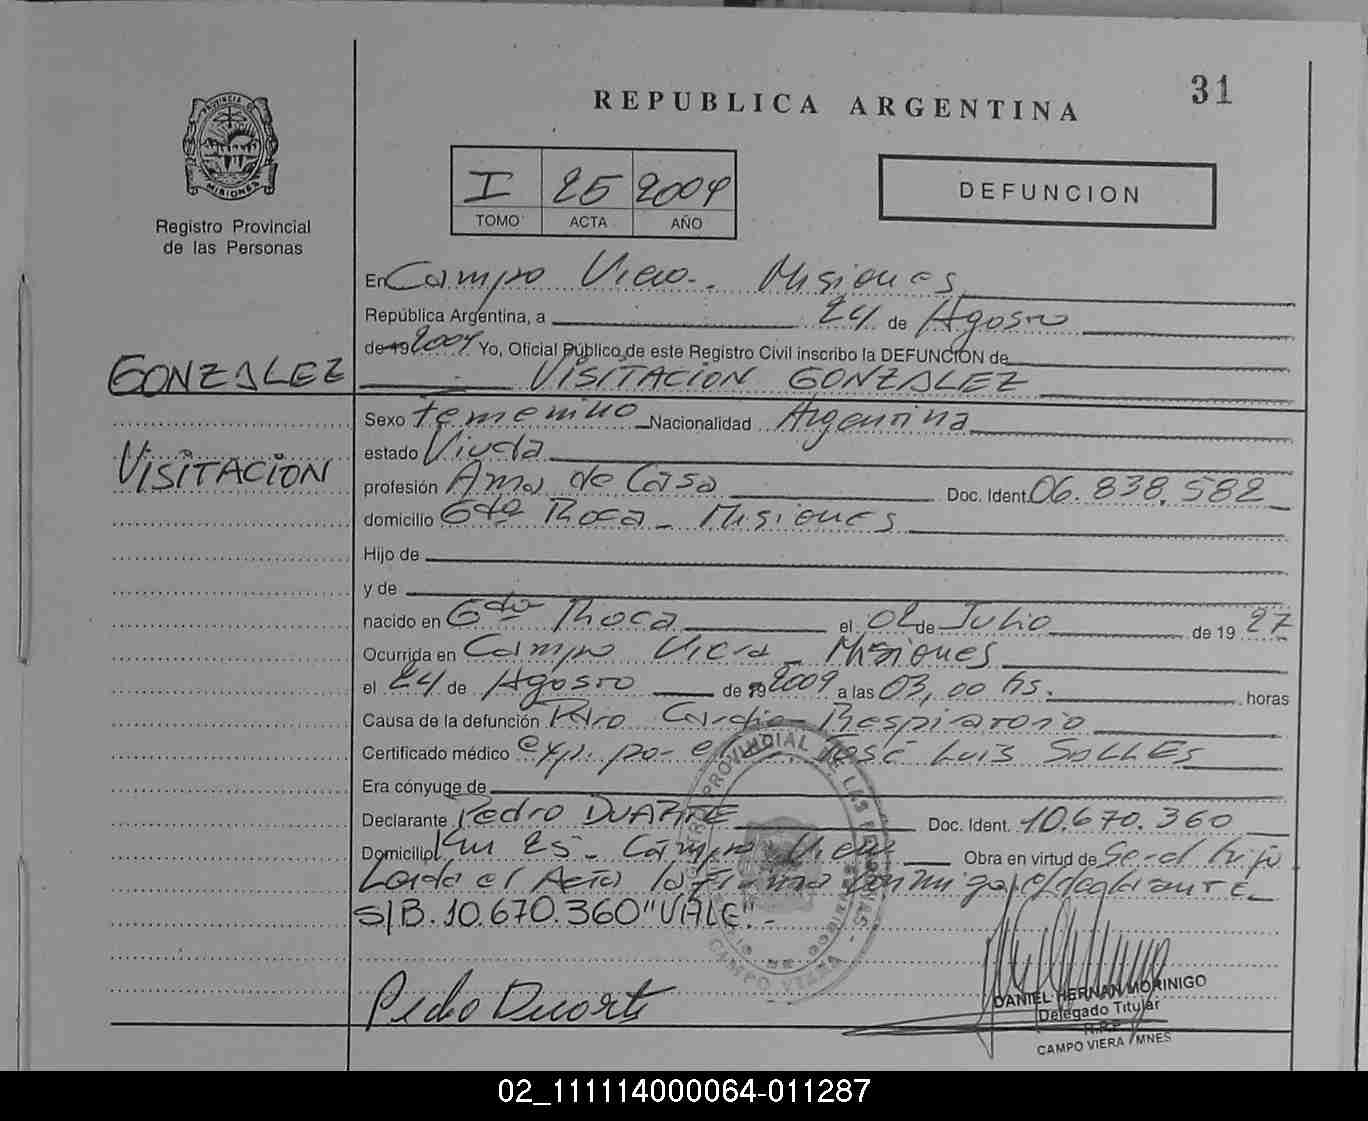 31
REPUBLICA ARGENTINA
PROVINCIA DE
MISIONES
Registro Provincial
de las Personas
I 25 2009
TOMO ACTA AÑO
DEFUNCION
En Campo Viera. Misiones
República Argentina, a 24 de Agosto
de 19 2009 Yo, Oficial Público de este Registro Civil inscribo la DEFUNCION de
GONZALEZ
VISITACION GONZALEZ
Sexo femenino Nacionalidad Argentina
estado Viuda
VISITACION
profesión Ama de Casa Doc. Ident. 06.838.582
domicilio Gdor Roca - Misiones
Hijo de
y de
nacido en Gdor Roca el 02 de Julio de 19 27
Ocurrida en Campo Viera - Misiones
el 24 de Agosto de 19 2009 a las 03,00 hs. horas
Causa de la defunción Paro Cardio-Respiratorio
Certificado médico exp. por el José Luis SALLES
Era cónyuge de
Declarante Pedro DUARTE Doc. Ident. 10.670.360
Domicilio Km 25 - Campo Viera Obra en virtud de Ser el hijo
Leida el Acta la Firma conmigo el declarante
S/B. 10.670.360 "VALE".-
Pedro Duarte
DANIEL HERNAN MORINIGO
Delegado Titular
R.P.P.
CAMPO VIERA MNES
02_111114000064-011287